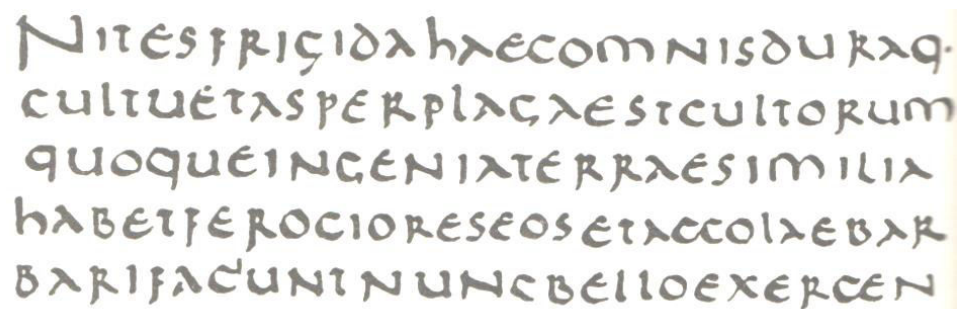 NITESFRIGIDAHAECOMNISDURAQ·
CULTUETASPERPLAGAESTCULTORUM
QUOQUEINGENIATERRAESIMILIA
HABETFEROCIORESEOSETACCOLAEBAR
BARIFACIUNTNUNCBELLOEXERCEN